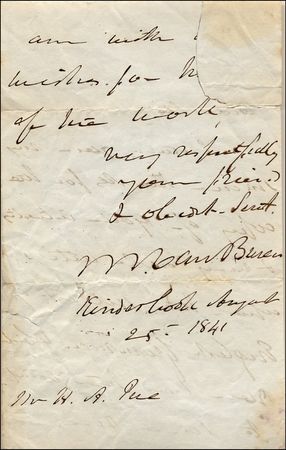 am with
wishes for
of the work,
very respectfully
your friend
& obedt. Servt.
M. Van Buren
Kinderhook August
25 - 1841
Mr H. A.